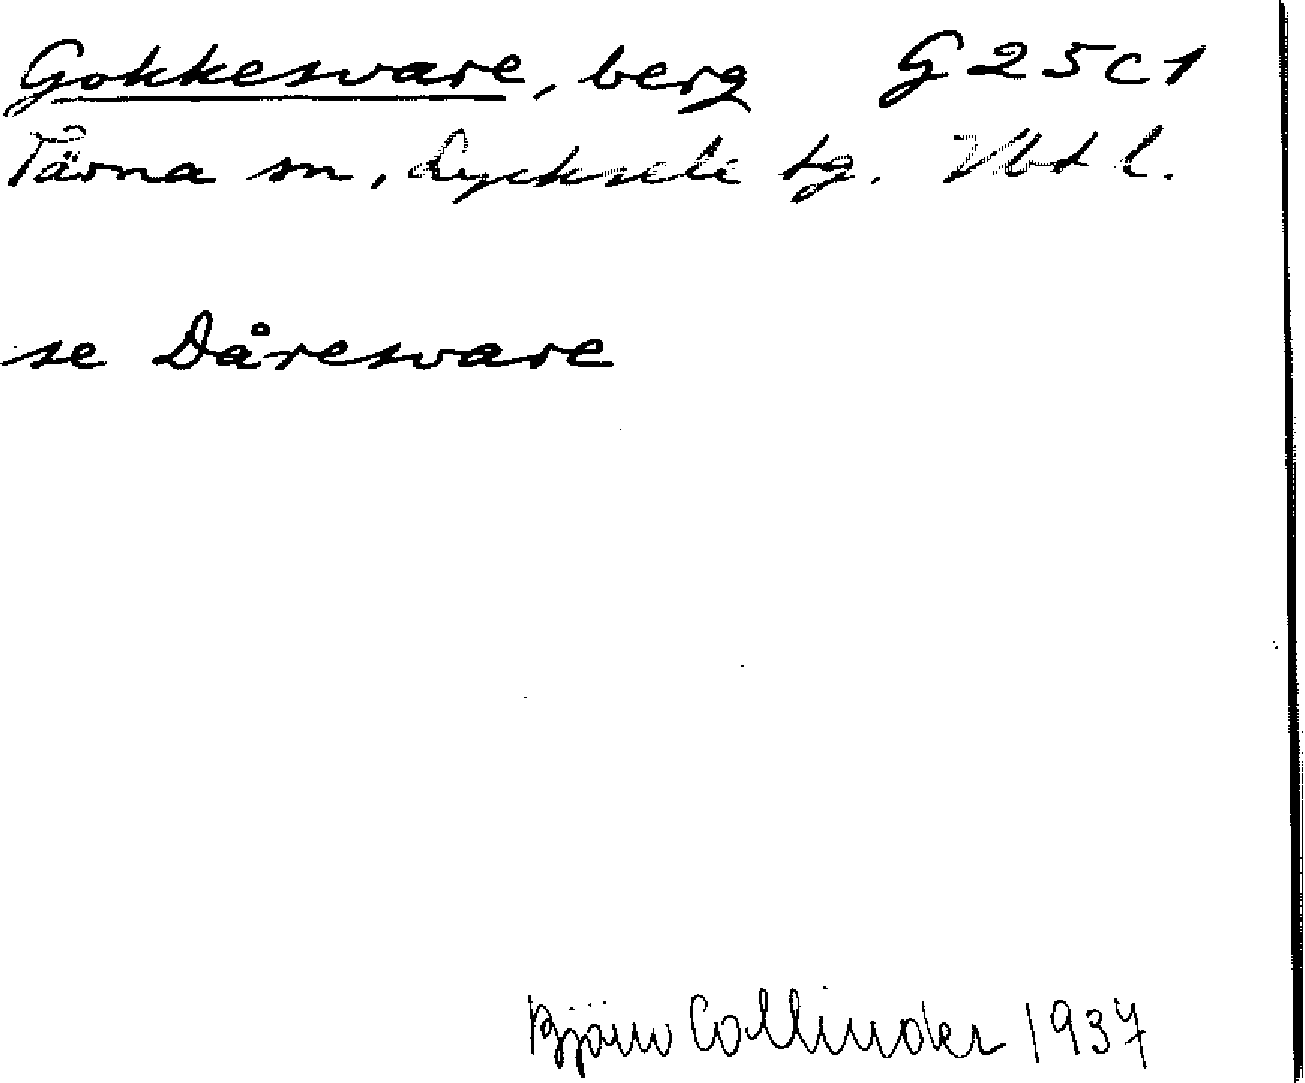 Gokkesvare, berg G25c1
Tärna sn, Lycksele tg. Vbtl.
se Dåresvare
Björn Collinder 1937